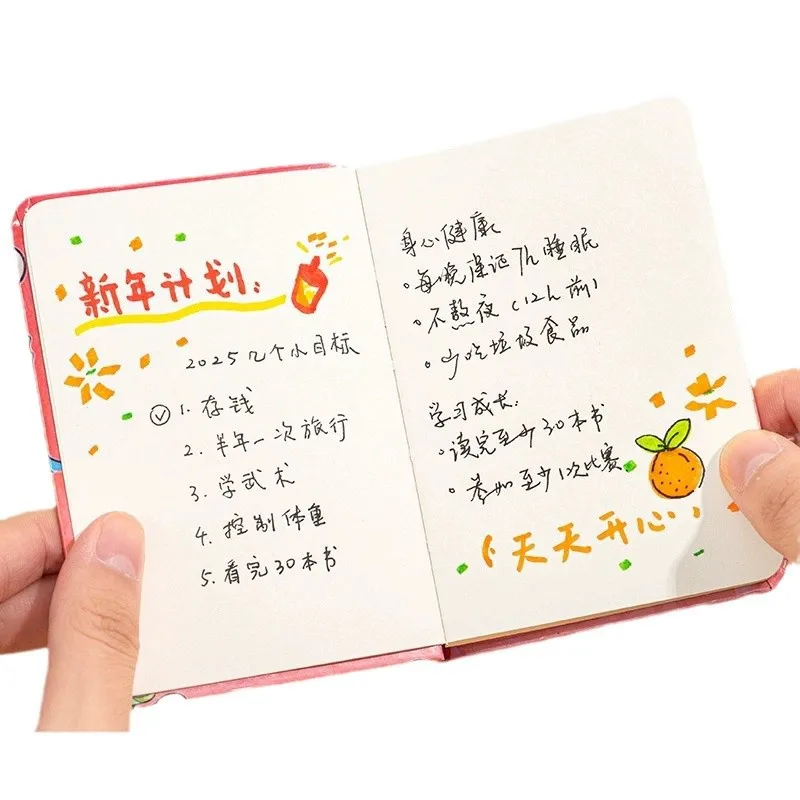 新年计划:
2025几个小目标
1. 存钱
2. 半年一次旅行
3. 学武术
4. 控制体重
5. 看完30本书
身心健康
·每晚保证7h睡眠
·不熬夜(12h前)
·少吃垃圾食品
学习成长:
·读完至少30本书
·参加至少1次比赛
天天开心